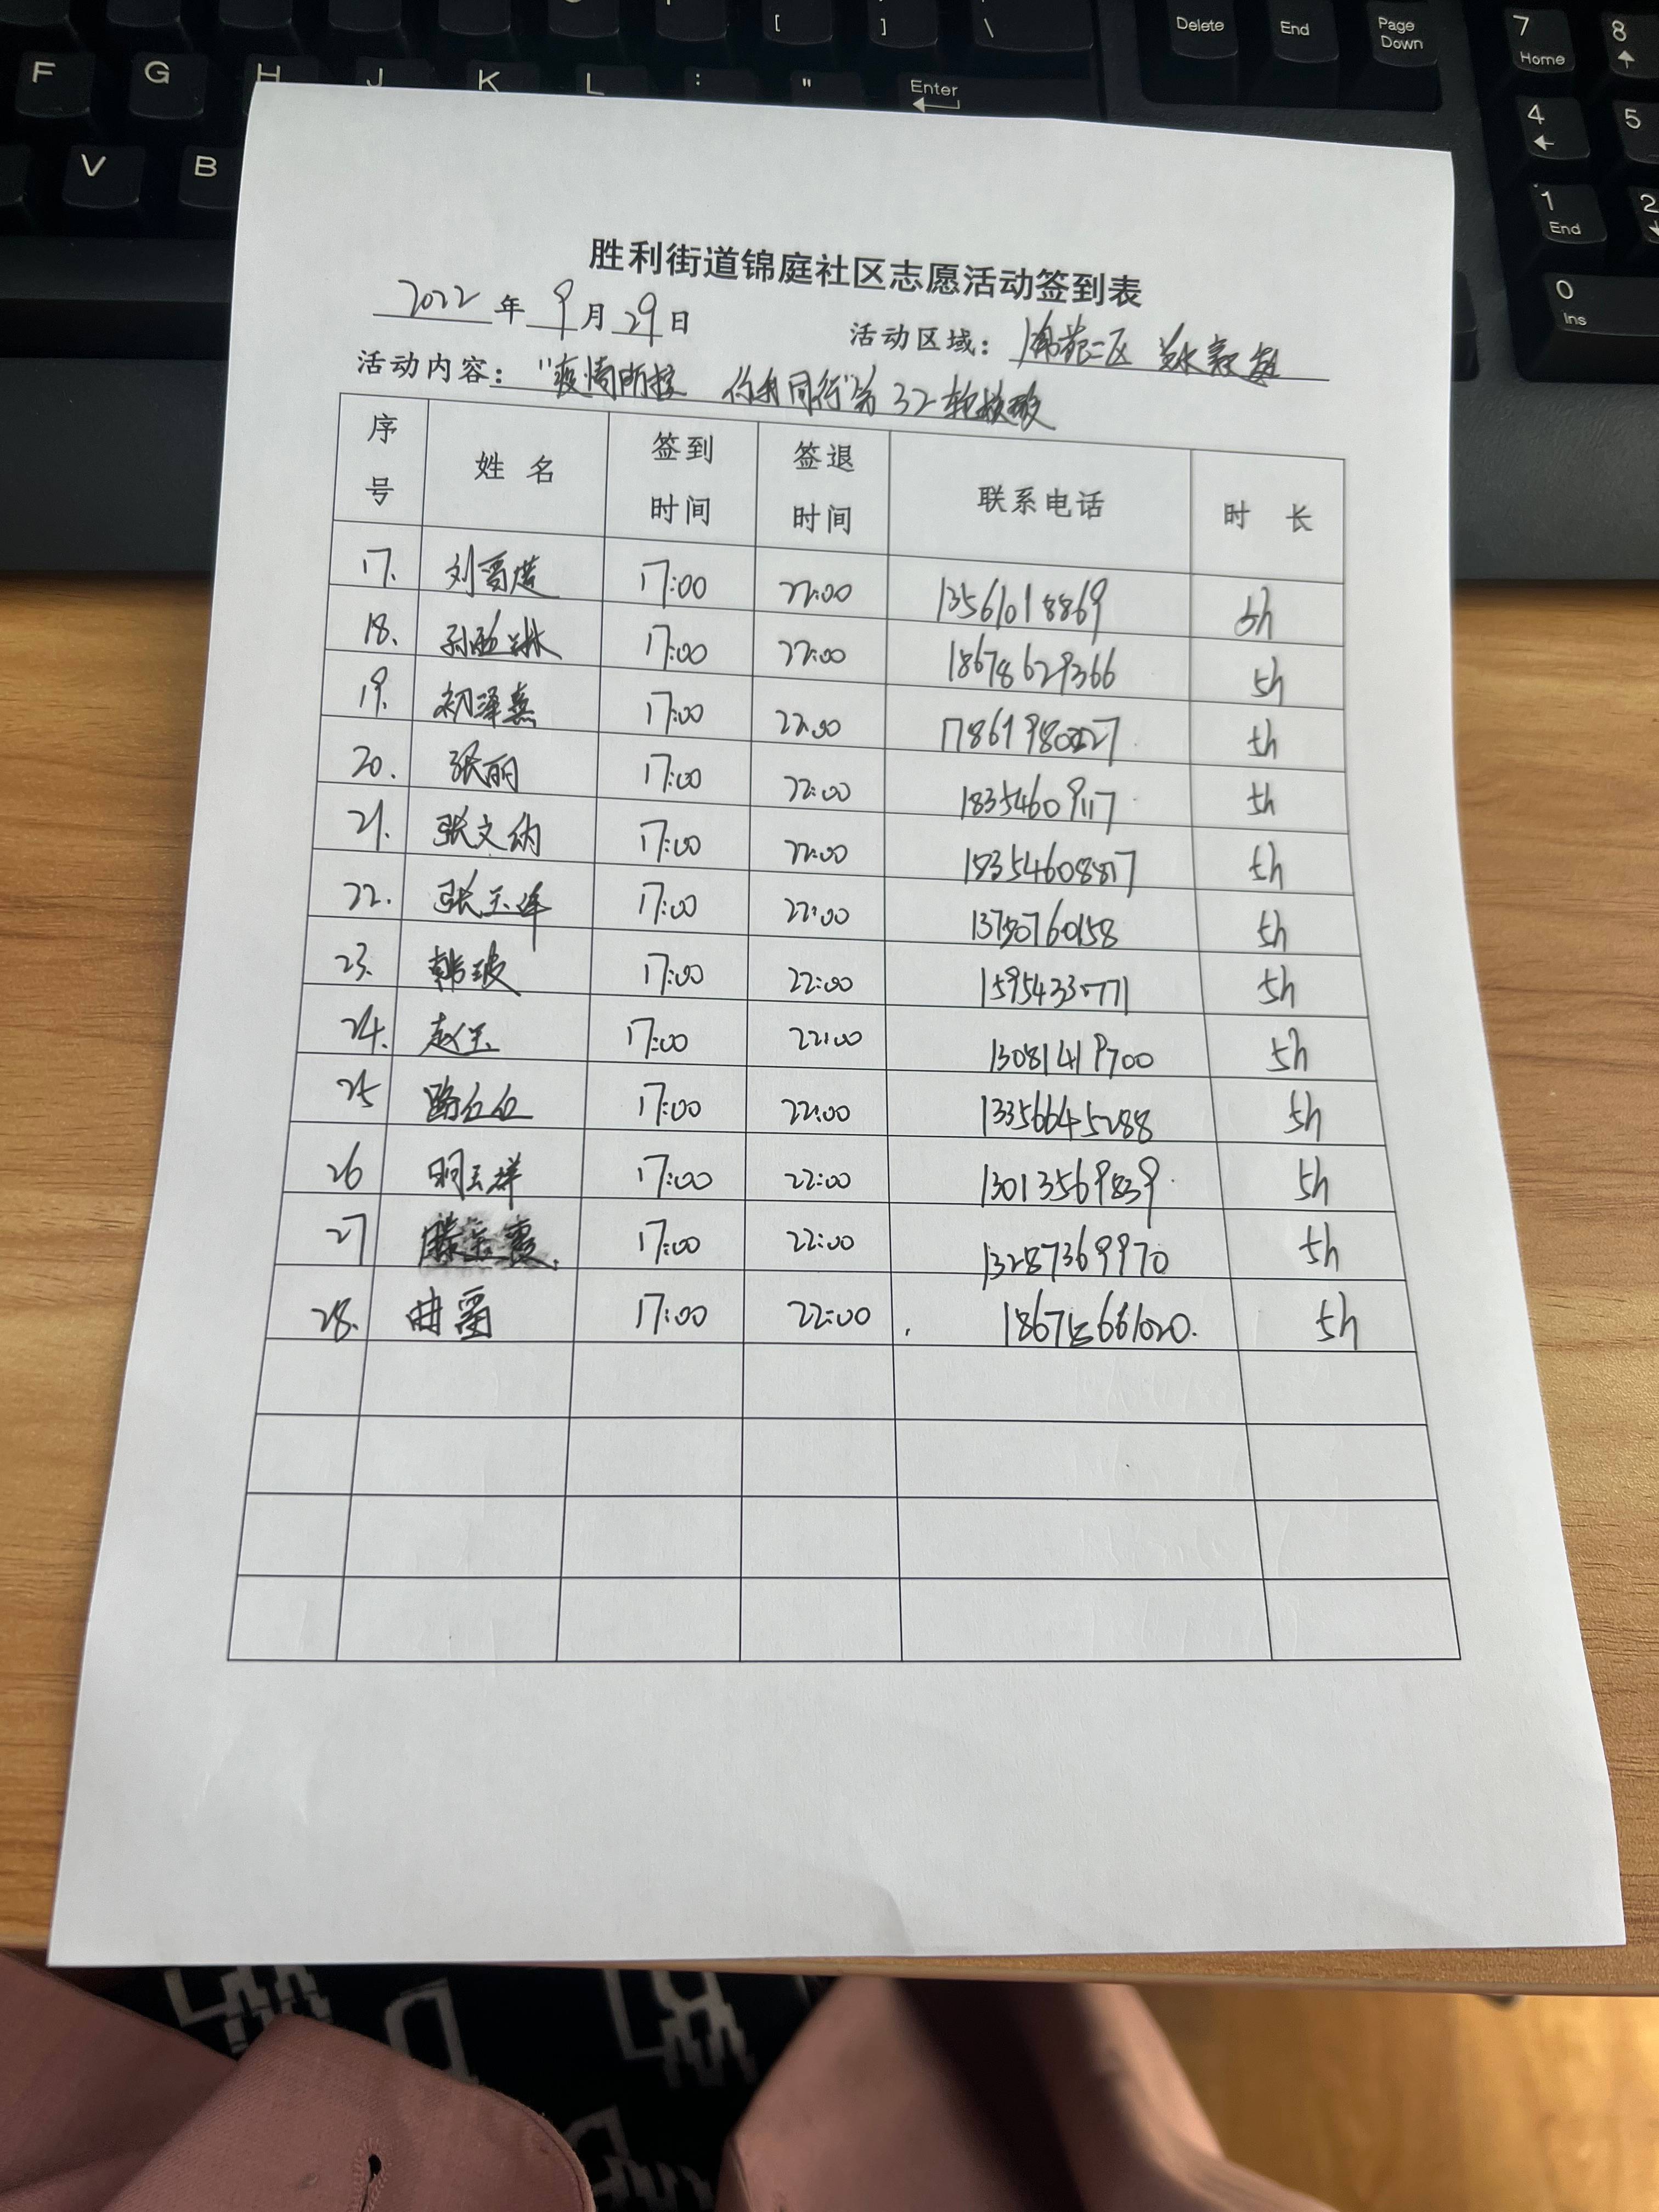 [
]
\
Delete
End
Page
Down
7
Home
8
F
G
H
J
K
L
:
"
Enter
4
5
V
B
1
End
2
0
Ins
胜利街道锦庭社区志愿活动签到表
2022 年 9 月 29 日
活动区域: 锦苑二区
活动内容: "疫情防控 你我同行"第32轮核酸
序号 姓名 签到时间 签退时间 联系电话 时长
17. 17:00 22:00 13561018869 5h
18. 17:00 22:00 18678629366 5h
19. 初泽熹 17:00 22:00 5h
20. 张丽 17:00 22:00 18354609117 5h
21. 张文纳 17:00 22:00 5h
22. 张玉萍 17:00 22:00 5h
23. 韩波 17:00 22:00 5h
24. 赵玉 17:00 22:00 13081419700 5h
25 路红红 17:00 22:00 13356645288 5h
26 明玉祥 17:00 22:00 13013569839 5h
27 滕玉霞 17:00 22:00 13287369970 5h
28. 曲蕾 17:00 22:00 5h